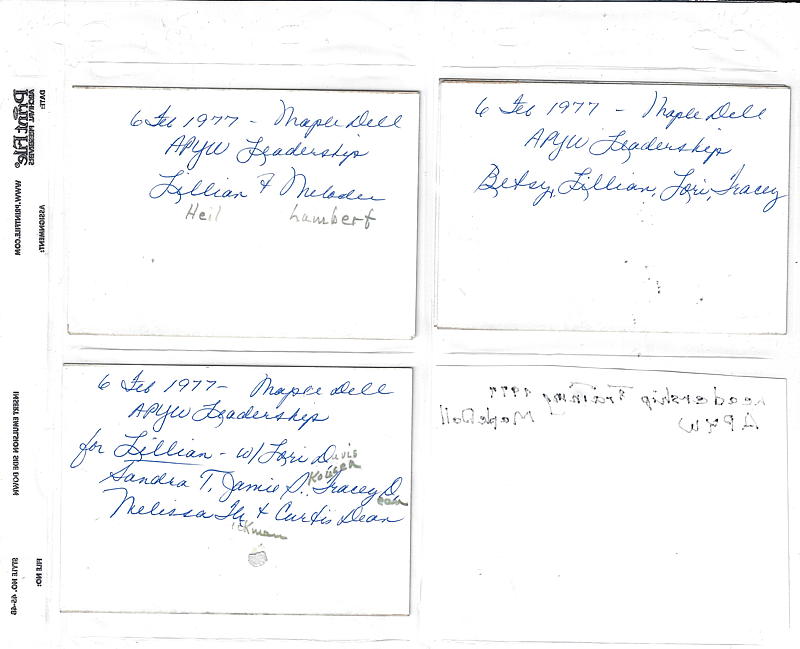 6 Feb 1977 - Maple Dell
APYW Leadership
Lillian & Melodee
Heil Lambert
6 Feb 1977 - Maple Dell
APYW Leadership
Betsy, Lillian, Lori, Tracey
6 Feb 1977- Maple Dell
APYW Leadership
for Lillian - w/ Lori Davis
Kouser
Sandra T, Jamie S. Tracey D.
ean
Melissa Hi & Curtis Dean
ickman
Leadership Training 1977
APYW Maple Dell
DATE:
ARCHIVAL PRESERVERS
Print File®
WWW.PRINTFILE.COM
ASSIGNMENT:
INSERT EMULSION SIDE DOWN
FILE NO:
STYLE NO. 45-8B